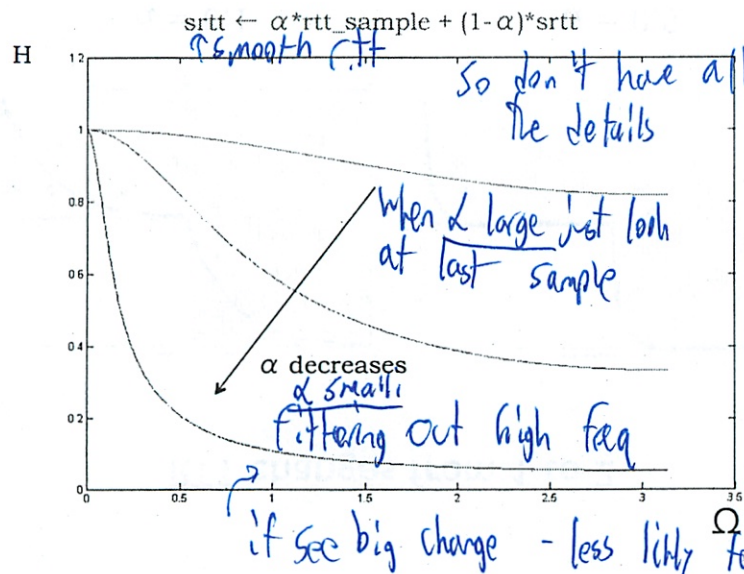 srtt ← α*rtt_sample + (1-α)*srtt
↑ smooth rtt
H
so don't have all
the details
when α large just look
at last sample
α decreases
α small:
filtering out high freq
if see big change - less likly
1.2
1
0.8
0.6
0.4
0.2
0
0 0.5 1 1.5 2 2.5 3 3.5
Ω